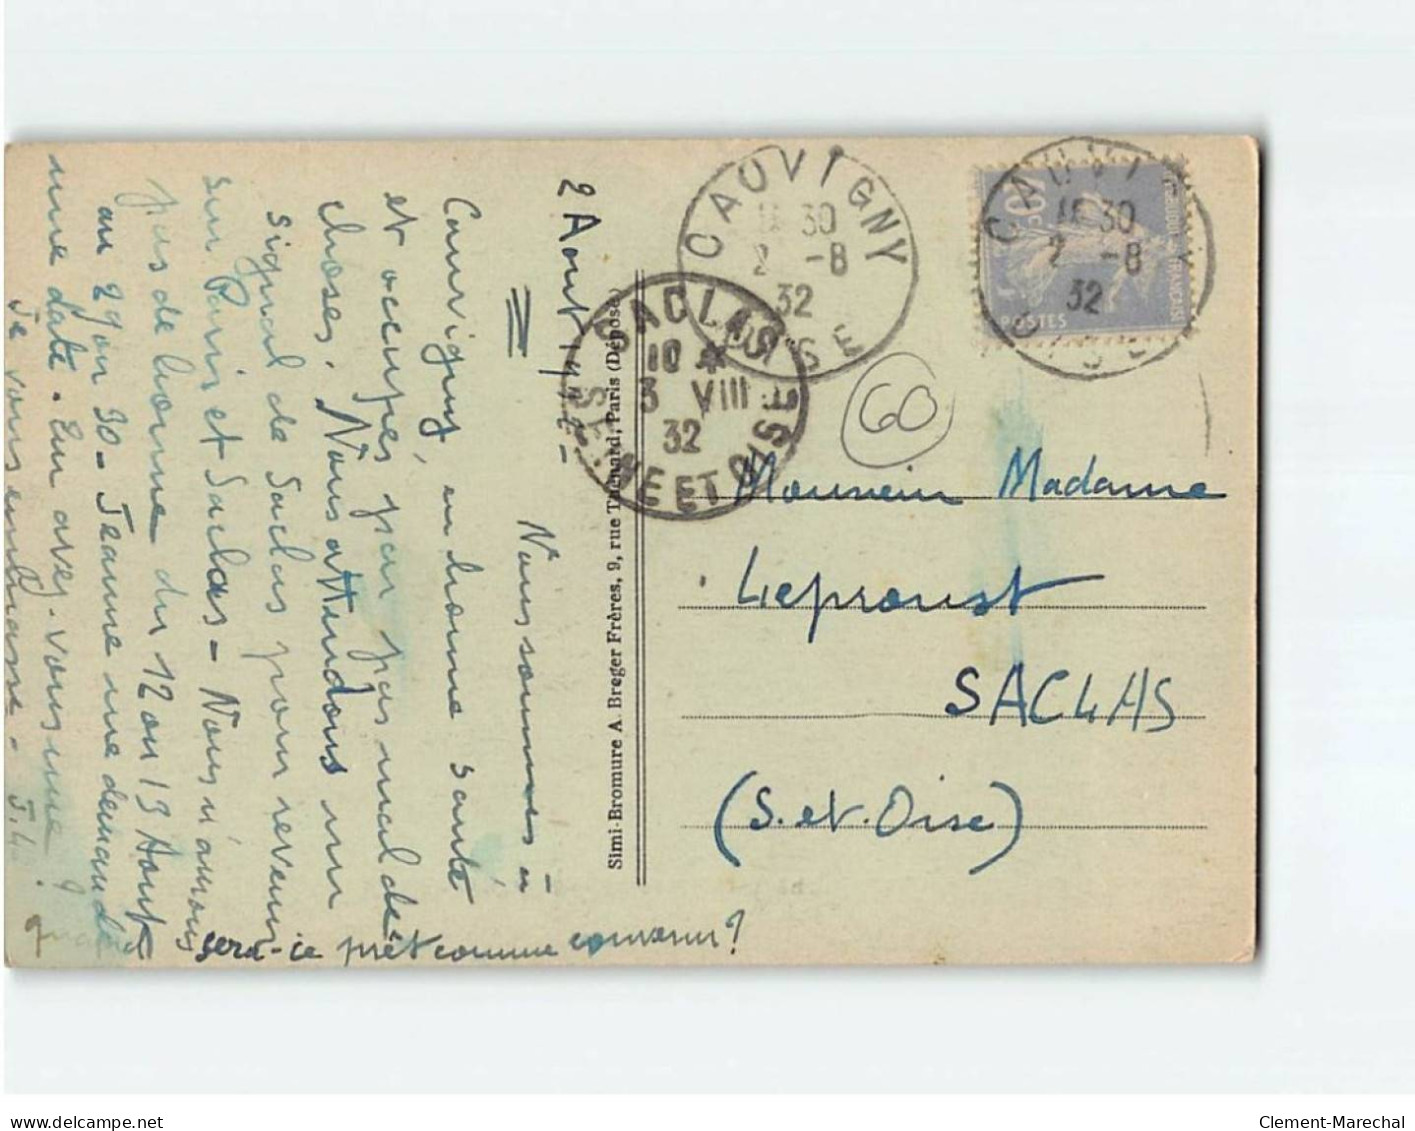 2 Aout 14 h -
Nous sommes à
Cauvigny, en bonne santé
et occupés par pas mal de
choses. Nous attendons un
signal de Saclas pour revenir
sur Paris et Saclas - Nous n'aurons
pas de bonne du 12 ou 13 Aout
au 29 ou 30 - Jeanne me demande
une date. En avez-vous une ?
Je vous embrasse - J.L.
sera-ce prêt comme convenu ?
Simi-Bromure A. Breger Frères, 9, rue Thénard, Paris (Déposé)
CAUVIGNY
11 30
2 -8
32
OISE
SACLAS
10 *
3 VIII
32
SEINE ET OISE
CAUVI Y
11 30
2 -8
32
OISE
POSTES
60
Monsieur Madame
Leproust
SACLAS
(S. et. Oise)
delcampe.net
Clement-Marechal